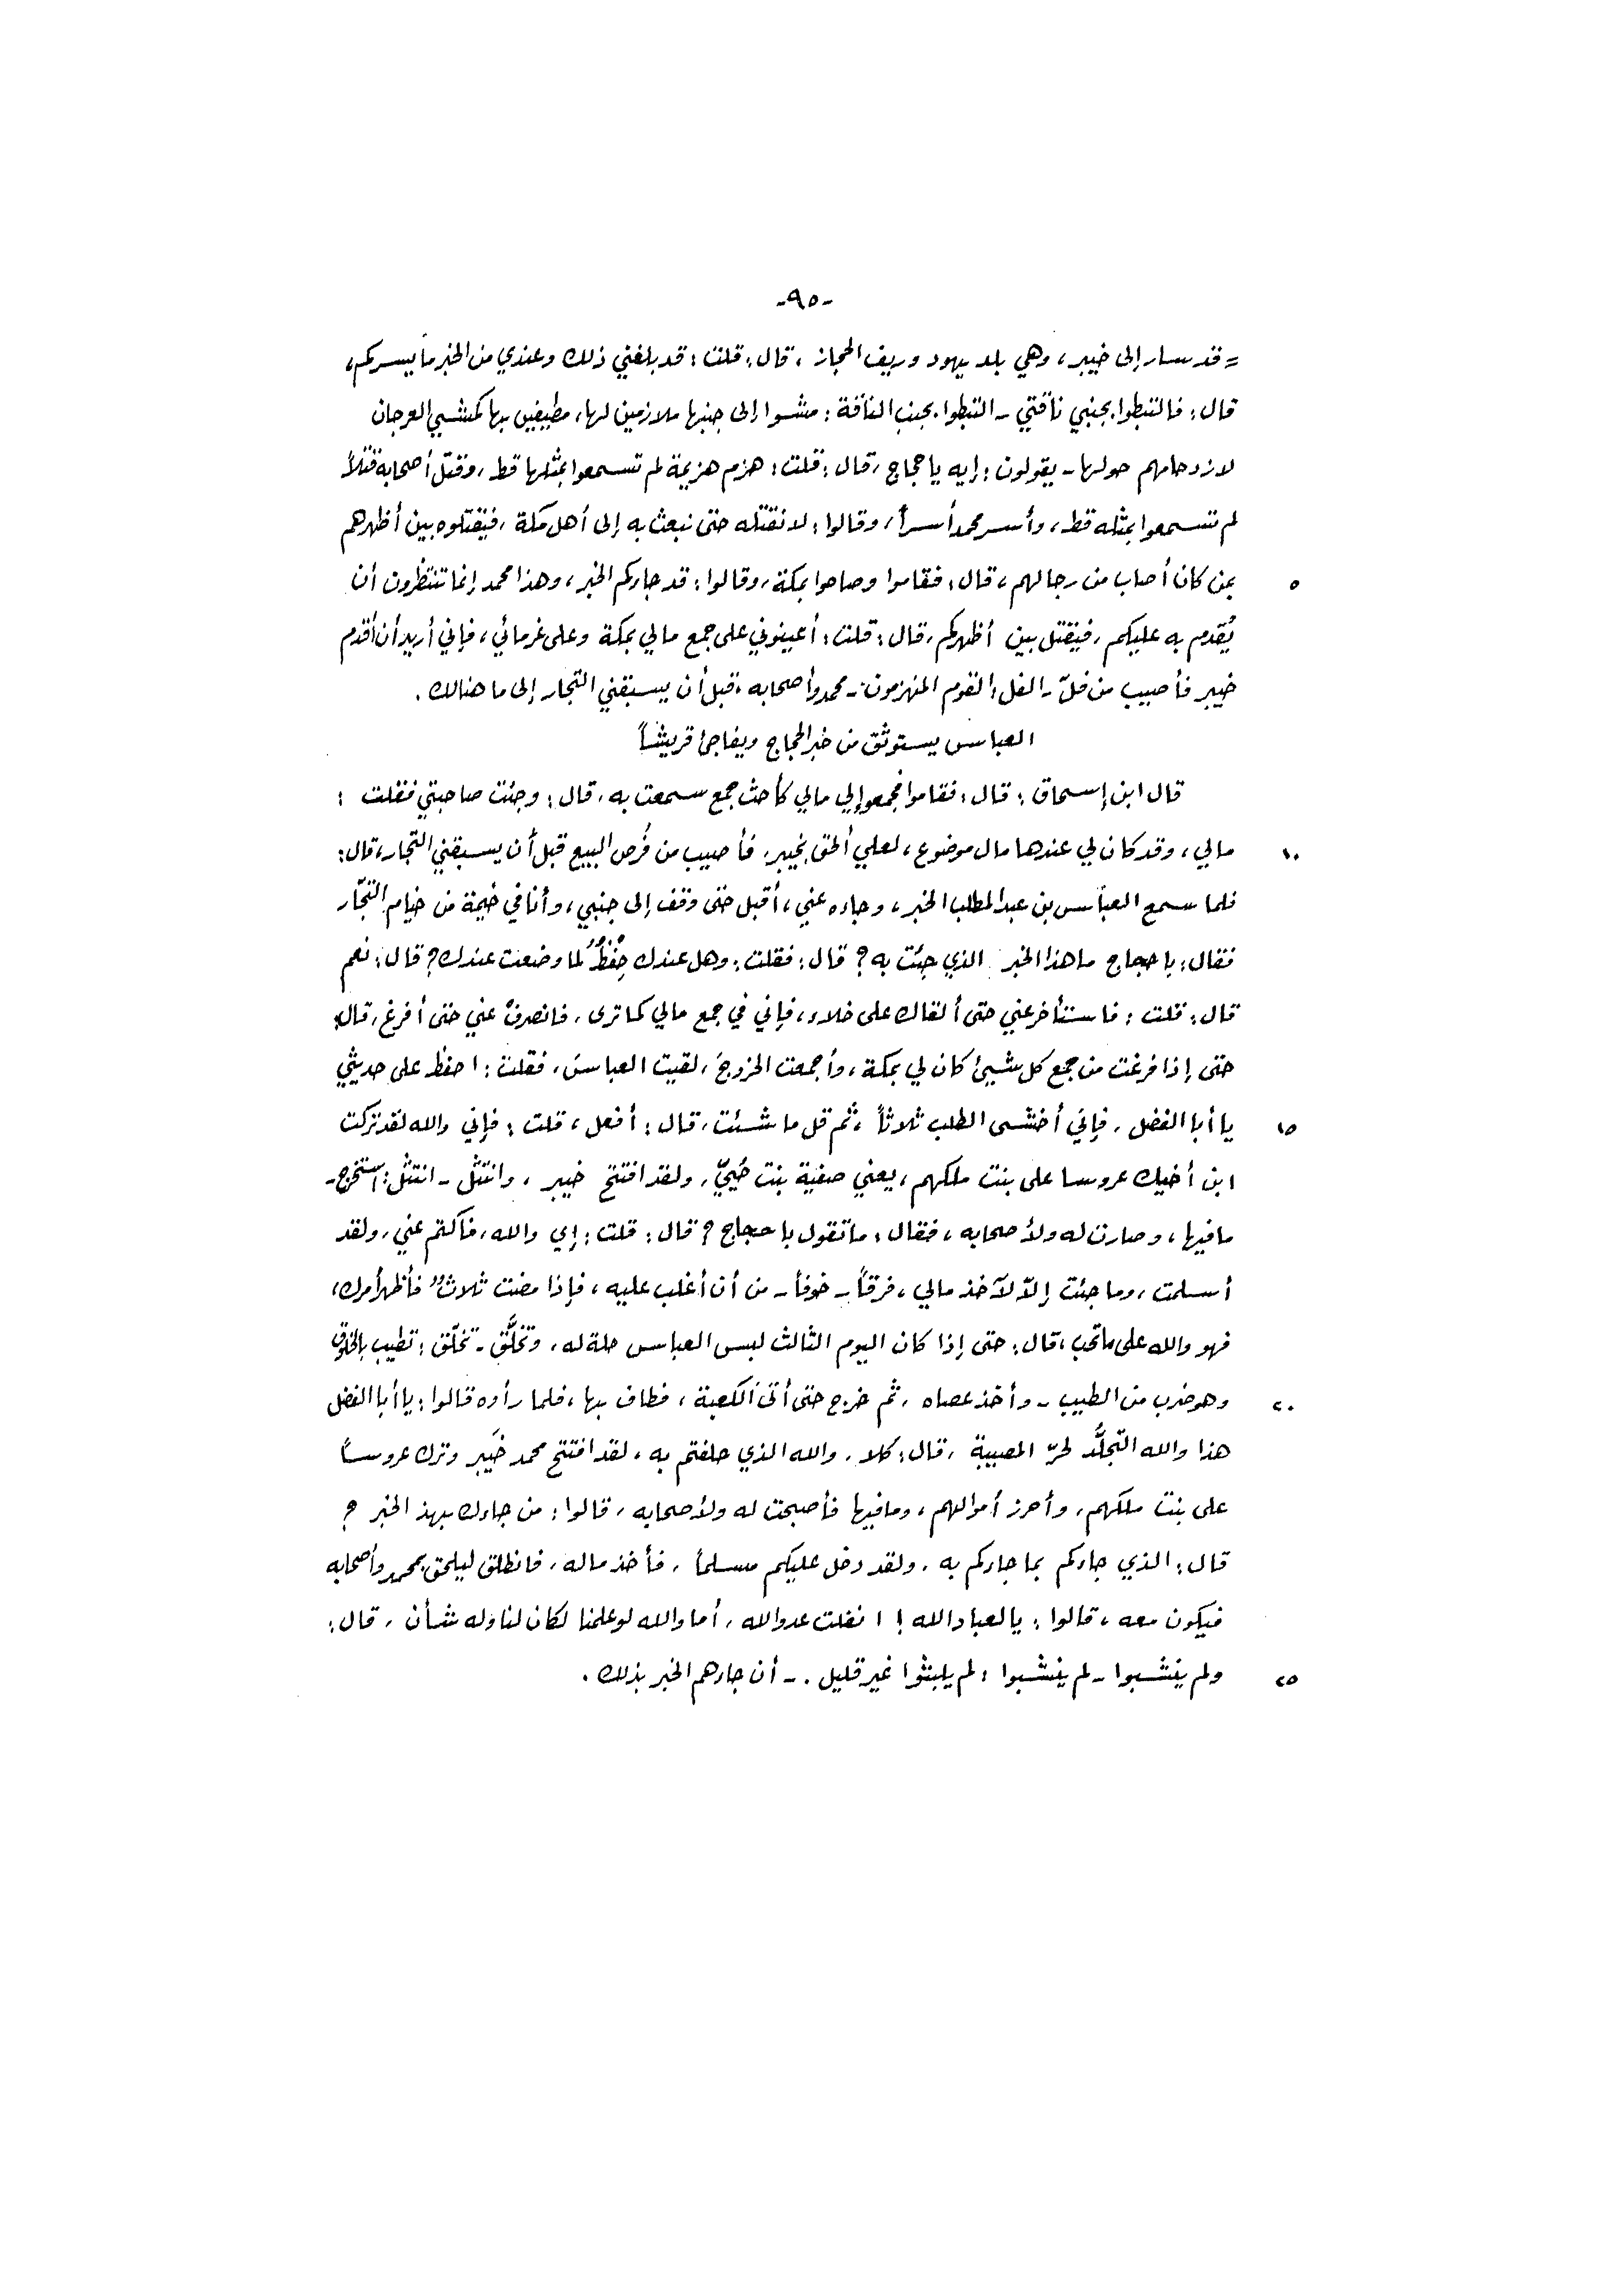 -٩٥-
= قد سار إلى خيبر، وهي بلد يهود وريف الحجاز، قال: قلت: قد بلغني ذلك وعندي من الخبر ما يسركم،
قال: فالتبطوا بجنبي ناقتي - التبطوا بجنب الناقة: مشوا إلى جنبها ملازمين لها، مطيفين بها كمشي العرجان
لازدحامهم حولها - يقولون: إيه يا حجاج، قال: قلت: هزم هزيمة لم تسمعوا بمثلها قط، وقتل أصحابه قتلاً
لم تسمعوا بمثله قط، وأسر محمد أسراً، وقالوا: لا نقتله حتى نبعث به إلى أهل مكة، فيقتلوه بين أظهرهم
٥ بمن كان أصاب من رجالهم، قال: فقاموا وصاحوا بمكة، وقالوا: قد جاءكم الخبر، وهذا محمد إنما تنتظرون أن
يُقدم به عليكم، فيقتل بين أظهركم، قال: قلت: أعينوني على جمع مالي بمكة وعلى غرمائي، فإني أريد أن أقدم
خيبر فأصيب من فلّ - الفل: القوم المنهزمون - محمد وأصحابه، قبل أن يسبقني التجار إلى ما هنالك.
العباس يستوثق من خبر الحجاج ويفاجئ قريشاً
قال ابن إسحاق: قال: فقاموا فجمعوا إلي مالي كأحث جمع سمعت به، قال: وجئت صاحبتي فقلت:
١٠ مالي، وقد كان لي عندها مال موضوع، لعلي ألحق بخيبر، فأصيب من فُرص البيع قبل أن يسبقني التجار، قال:
فلما سمع العبّاس بن عبد المطلب الخبر، وجاءه عني، أقبل حتى وقف إلى جنبي، وأنا في خيمة من خيام التجّار
فقال: يا حجاج ما هذا الخبر الذي جئت به؟ قال: فقلت: وهل عندك حِفْظٌ لما وضعت عندك؟ قال: نعم
قال: قلت: فاستأخر عني حتى ألقاك على خلاء، فإني في جمع مالي كما ترى، فانصرف عني حتى أفرغ، قال:
حتى إذا فرغت من جمع كل شيئ كان لي بمكة، وأجمعت الخروج، لقيت العباس، فقلت: احفظ علي حديثي
١٥ يا أبا الفضل، فإني أخشى الطلب ثلاثاً، ثم قل ما شئت، قال: أفعل، قلت: فإني والله لقد تركت
ابن أخيك عروسا على بنت ملكهم، يعني صفية بنت حُيَيّ، ولقد افتتح خيبر، وانتثل - انتثل: استخرج -
ما فيها، وصارت له ولأصحابه، فقال: ما تقول يا حجاج؟ قال: قلت: إي والله، فاكتم عني، ولقد
أسلمت، وما جئت إلاّ لآخذ مالي، فرقاً - خوفاً - من أن أغلب عليه، فإذا مضت ثلاثٌ فأظهر أمرك،
فهو والله على ما تحب، قال: حتى إذا كان اليوم الثالث لبس العباس حلة له، وتخلَّق - تخلّق: تطيب بالخلوق
٢٠ وهو ضرب من الطيب - وأخذ عصاه، ثم خرج حتى أتى الكعبة، فطاف بها، فلما رأوه قالوا: يا أبا الفضل
هذا والله التجلُّد لحرّ المصيبة، قال: كلا، والله الذي حلفتم به، لقد افتتح محمد خيبر وترك عروساً
على بنت ملكهم، وأحرز أموالهم، وما فيها فأصبحت له ولأصحابه، قالوا: من جاءك بهذا الخبر؟
قال: الذي جاءكم بما جاءكم به، ولقد دخل عليكم مسلماً، فأخذ ماله، فانطلق ليلحق بمحمد وأصحابه
فيكون معه، قالوا: يا لعباد الله! انفلت عدو الله، أما والله لو علمنا لكان لنا وله شأن، قال:
٢٥ ولم ينشبوا - لم ينشبوا: لم يلبثوا غير قليل. - أن جاءهم الخبر بذلك.